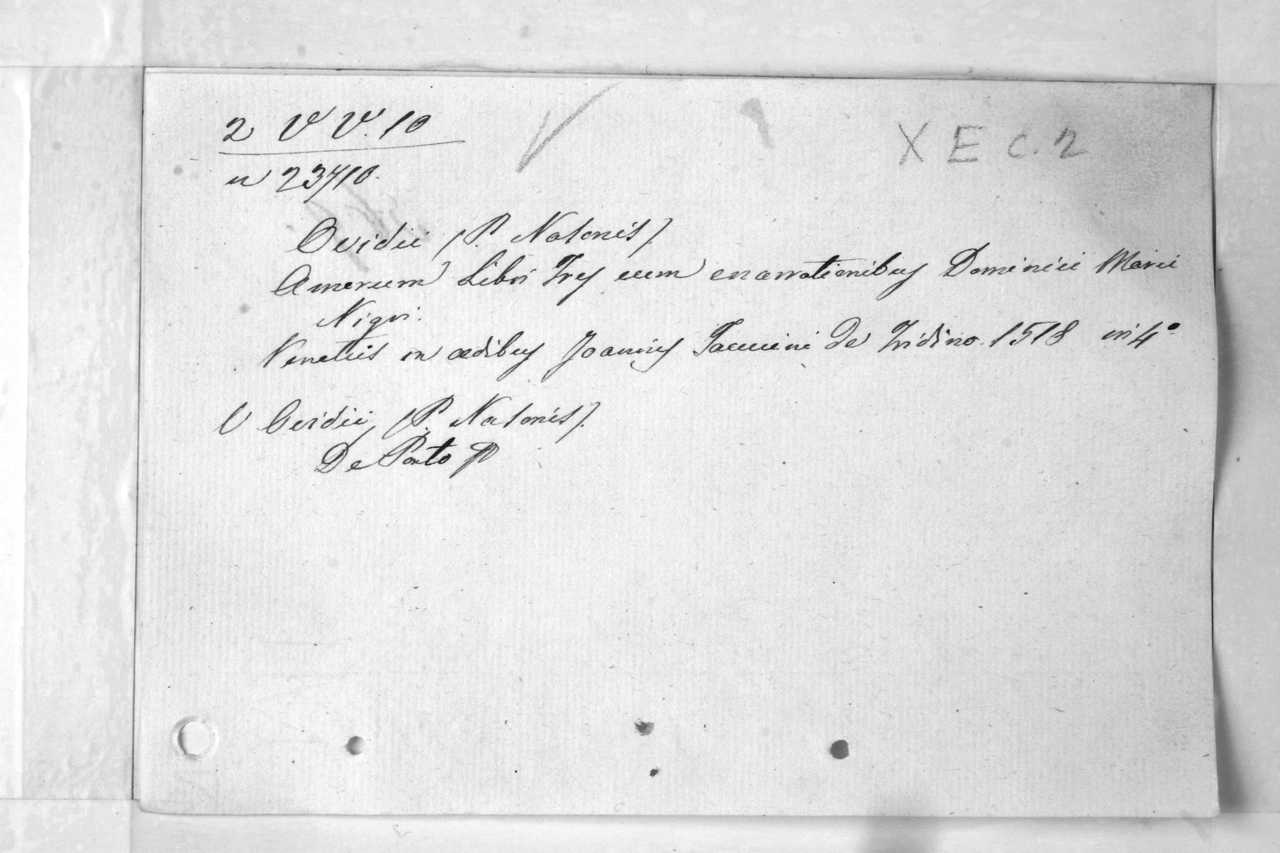 2 V V. 10
X E C. 2
n 23710.
Ovidii (P. Nasonis)
Amorum Libri Tres cum enarrationibus Dominici Marii
Nigri.
Venetiis in ædibus Joannis Tacuini De Tridino. 1518 in 4º
V Ovidii (P. Nasonis).
De Ponto